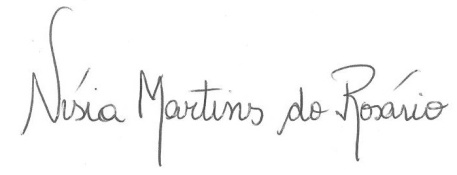 Nísia Martins do Rosário